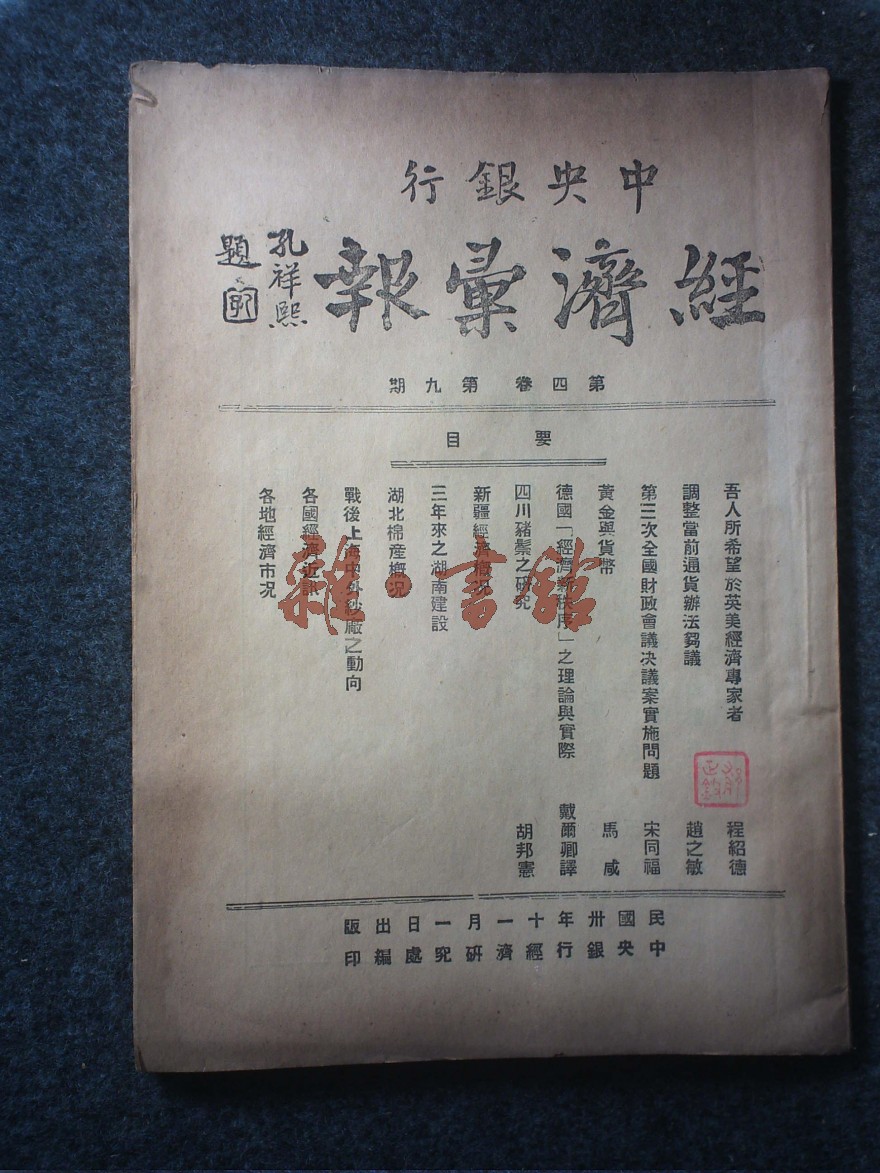 中央銀行
經濟彙報
孔祥熙
題
第四卷第九期
要目
吾人所希望於英美經濟專家者 程紹德
調整當前通貨辦法芻議 趙之敏
第三次全國財政會議决議案實施問題 宋同福
黃金與貨幣 馬咸
德國「經濟新秩序」之理論與實際 戴爾卿譯
四川豬鬃之研究 胡邦憲
新疆經濟概况
三年來之湖南建設
湖北棉產概况
戰後上海中外紗廠之動向
各國經濟近訊
各地經濟市况
民國卅年十一月一日出版
中央銀行經濟研究處編印
雜·書館